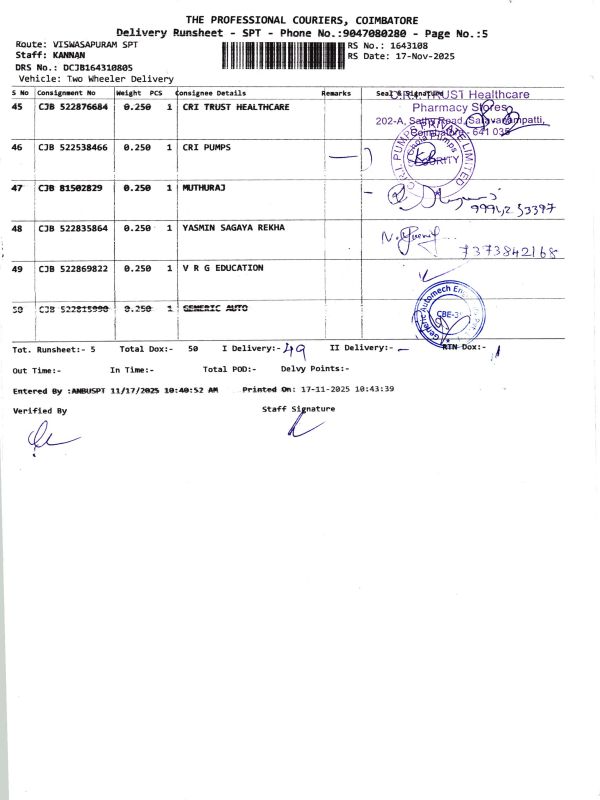 THE PROFESSIONAL COURIERS, COIMBATORE
Delivery Runsheet - SPT - Phone No.:9047080280 - Page No.:5
Route: VISWASAPURAM SPT
Staff: KANNAN
DRS No.: DCJB164310805
Vehicle: Two Wheeler Delivery
RS No.: 1643108
RS Date: 17-Nov-2025
S No Consignment No Weight PCS Consignee Details Remarks Seal & Signature
45 CJB 522876684 0.250 1 CRI TRUST HEALTHCARE
C.R.I. TRUST Healthcare
Pharmacy Stores
202-A, Sathy Road, Saravanampatti,
Coimbatore - 641 035
46 CJB 522538466 0.250 1 CRI PUMPS
C.R.I. PUMPS PRIVATE LIMITED
SECURITY
47 CJB 81502829 0.250 1 MUTHURAJ
48 CJB 522835864 0.250 1 YASMIN SAGAYA REKHA
7373842168
49 CJB 522869822 0.250 1 V R G EDUCATION
50 CJB 522815990 0.250 1 GENERIC AUTO
CBE-35
Tot. Runsheet:- 5 Total Dox:- 50 I Delivery:- 49 II Delivery:- - RTN Dox:- 1
Out Time:- In Time:- Total POD:- Delvy Points:-
Entered By :ANBUSPT 11/17/2025 10:40:52 AM Printed On: 17-11-2025 10:43:39
Verified By Staff Signature